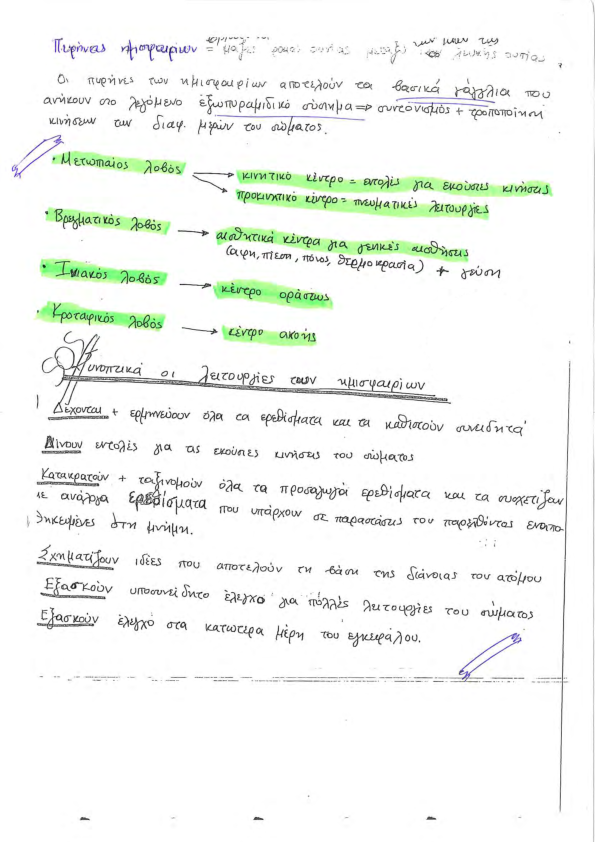 Πυρήνας ημισφαιρίων = μάζες φαιάς
Οι πυρήνες των ημισφαιρίων αποτελούν τα βασικά γάγγλια που
ανήκουν στο λεγόμενο εξωπυραμιδικό σύστημα ⇒ συντονισμός + τροποποίηση
κινήσεων των διαφ. μερών του σώματος.
• Μετωπιαίος λοβός → κινητικό κέντρο = εντολές για εκούσιες κινήσεις
→ προκινητικό κέντρο = πνευματικές λειτουργίες
• Βρεγματικός λοβός → αισθητικά κέντρα για γενικές αισθήσεις
(αφή, πίεση, πόνος, θερμοκρασία) + γεύση
• Ινιακός λοβός → κέντρο οράσεως
• Κροταφικός λοβός → κέντρο ακοής
Συνοπτικά οι λειτουργίες των ημισφαιρίων
Δέχονται + ερμηνεύουν όλα τα ερεθίσματα και τα καθιστούν συνειδητά
Δίνουν εντολές για τις εκούσιες κινήσεις του σώματος
Κατακρατούν + ταξινομούν όλα τα προσαγωγά ερεθίσματα και τα συσχετίζουν
με ανάλογα ερεθίσματα που υπάρχουν σε παραστάσεις του παρελθόντος εναπο-
θηκευμένες στη μνήμη.
Σχηματίζουν ιδέες που αποτελούν τη βάση της διάνοιας του ατόμου
Εξασκούν υποσυνείδητο έλεγχο για πολλές λειτουργίες του σώματος
Εξασκούν έλεγχο στα κατώτερα μέρη του εγκεφάλου.